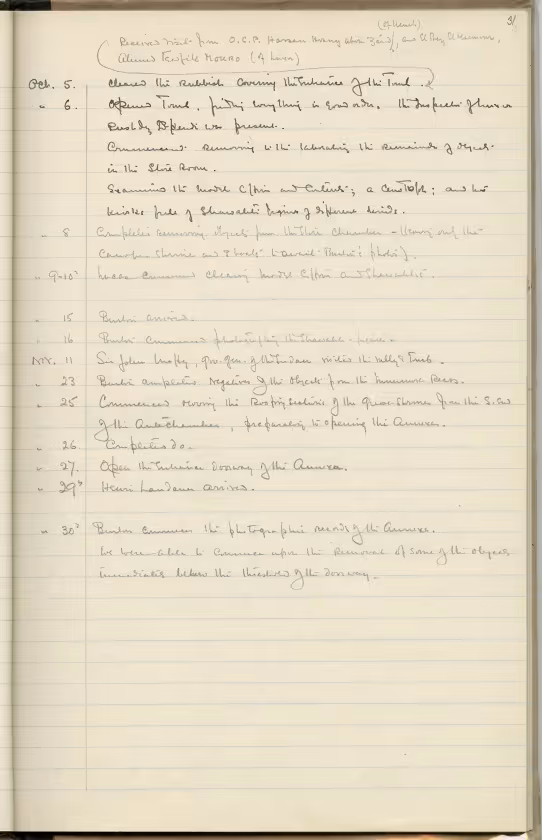 31
Received visit from O.C.P. Hassan
Oct. 5. Cleared the rubbish covering the entrance of the Tomb.
" 6. Opened Tomb, finding everything in good order. The Inspector of Luxor
Effendi was present.
Commenced removing to the laboratory the remainder of objects
in the Store Room.
Examined the model coffin and contents; a
kiosks full of Shawabti figures of different kinds.
" 8 Completed removing objects from the Store Chamber – leaving only the
Canopic shrine and
" 9-10 Lucas commenced cleaning model coffin and Shawabtis.
" 15 Burton arrived.
" 16 Burton commenced photographing the Shawabti-figures.
Nov. 11 Sir John Maffey, Gov. Gen. of the Sudan visited the Valley & Tomb.
" 23 Burton completed negatives of the objects from the Innermost
" 25 Commenced moving the Roofing sections of the Great Shrines from the S. End
of the Antechamber, preparatory to opening the Annexe.
" 26 Completed do.
" 27. Open the entrance doorway of the Annexe.
" 29 Henri Landauer arrived.
" 30 Burton commences the photographic records of the Annexe.
We were able to commence upon the removal of some of the objects
immediately before the threshold of the doorway.